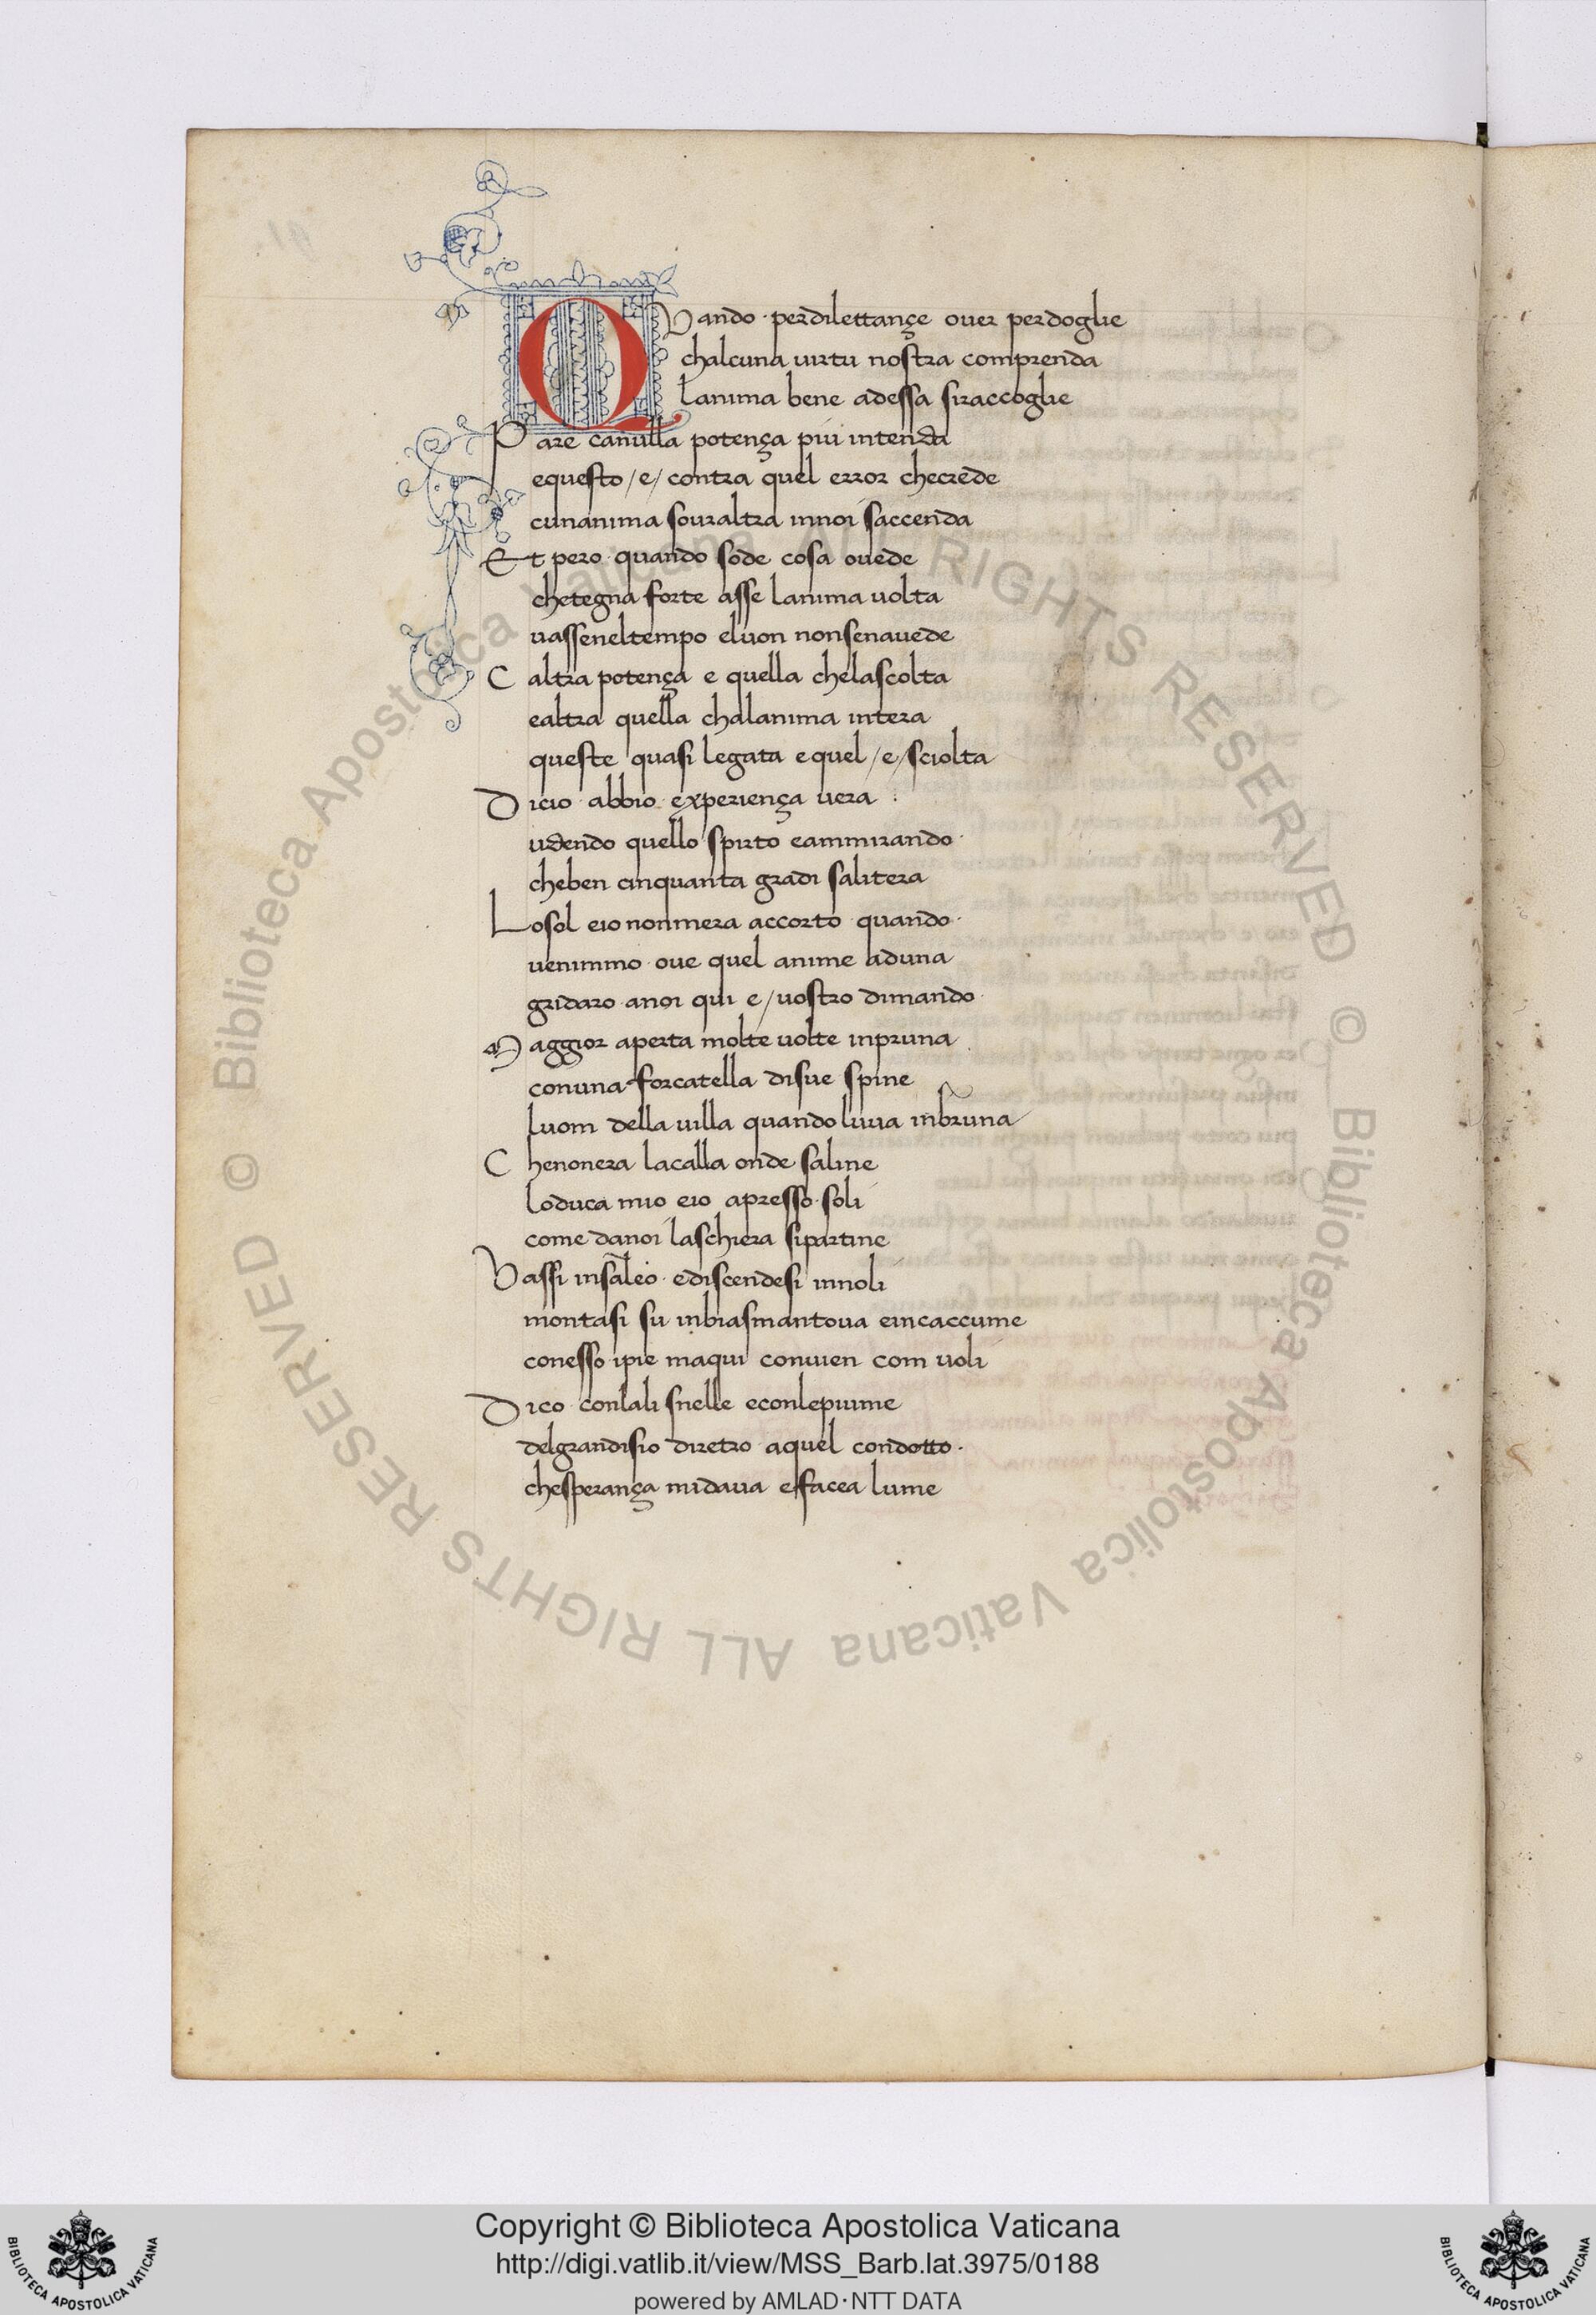 QVando · perdilettançe ouer perdoglie
chalcuna uirtu nostra comprenda
lanima bene adessa siraccoglie
Pare canulla potença piu intenda
equesto /e/ contra quel error checrede
cunanima souraltra innoi saccenda
Et pero · quando sode cosa ouede
chetegna forte asse lanima uolta
uasseneltempo eluon nonsenauede
C altra potença e quella chelascolta
ealtra quella chalanima intera
queste quasi legata equel /e/ sciolta
Dicio · abbio · experiença uera :
udendo quello spirto eammirando ·
cheben cinquanta gradi salitera
Losol eio nonmera accorto quando ·
uenimmo · oue quel anime aduna
gridaro · anoi qui e / uostro dimando ·
Maggior aperta molte uolte inpruna
conuna forcatella disue spine
luom della uilla quando luua inbruna
Chenonera lacalla onde saline
loduca mio eio apresso · soli
come danoi laschiera sipartine
Vassi insaleo · ediscendesi innoli
montasi su inbiasmantoua eincaccume
conesso ipie maqui conuien com uoli
Dico · conlali snelle econlepiume
delgrandisio diretro aquel condotto ·
chesperança midaua efacea lume
© Biblioteca Apostolica Vaticana ALL RIGHTS RESERVED © Biblioteca Apostolica Vaticana ALL RIGHTS RESERVED
Copyright © Biblioteca Apostolica Vaticana
http://digi.vatlib.it/view/MSS_Barb.lat.3975/0188
powered by AMLAD·NTT DATA
BIBLIOTECA APOSTOLICA VATICANA
BIBLIOTECA APOSTOLICA VATICANA